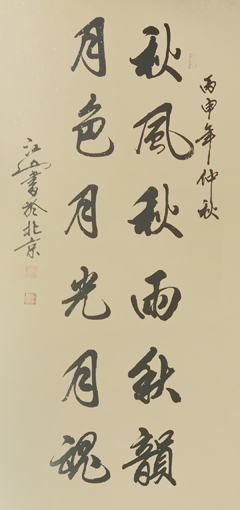 丙申年仲秋
秋風秋雨秋韻
月色月光月魂
江山書於北京